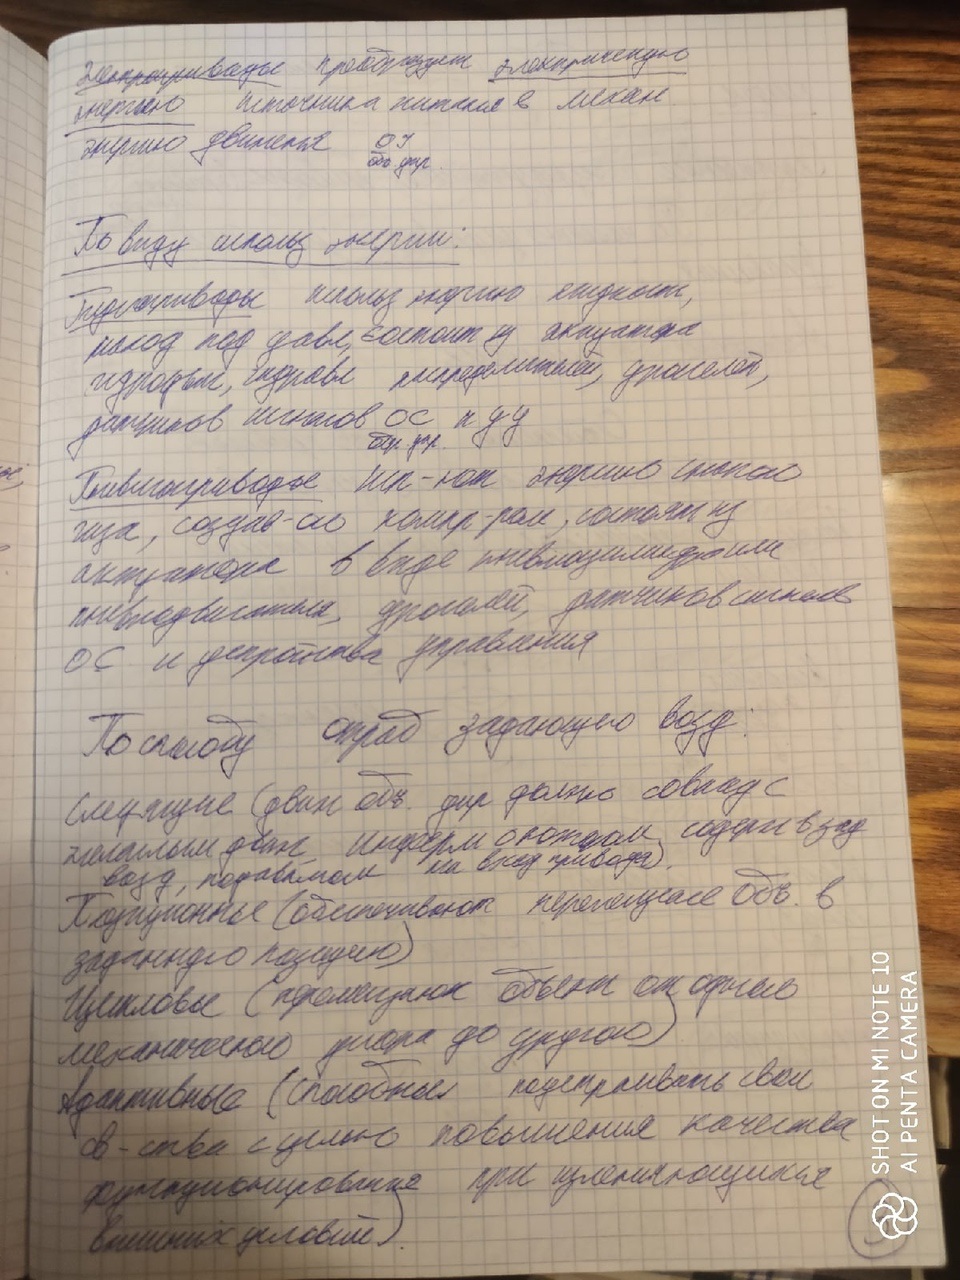 Электроприводы преобразует электрическую
энергию источника питания в механ
энергию движения ОУ
об. упр.
По виду использ энергии:
Гидроприводы использ энергию жидкости,
наход под давл, состоит из актуатора
гидродв, гидравл распределителей, дросселей,
датчиков сигналов ОС и УУ
обр.
Пневмоприводы исп-ют энергию сжатого
газа, создав-ого компр-ром, состоят из
актуатора в виде пневмоцилиндра или
пневмодвигателя, дросселей, датчиков сигналов
ОС и устройства управления
По способу отраб задающего возд:
Следящие (движ об. упр должно совпад с
желаемым движ, информ о котором содерж в зад
возд, подаваемом на вход привода).
Позиционные (обеспечивают перемещение объ. в
заданную позицию)
Цикловые (перемещают объект от одного
механического упора до другого)
Адаптивные (способные подстраивать свои
св-ства с целью повышения качества
функционирования при изменяющихся
внешних условий).
3
SHOT ON MI NOTE 10
AI PENTA CAMERA